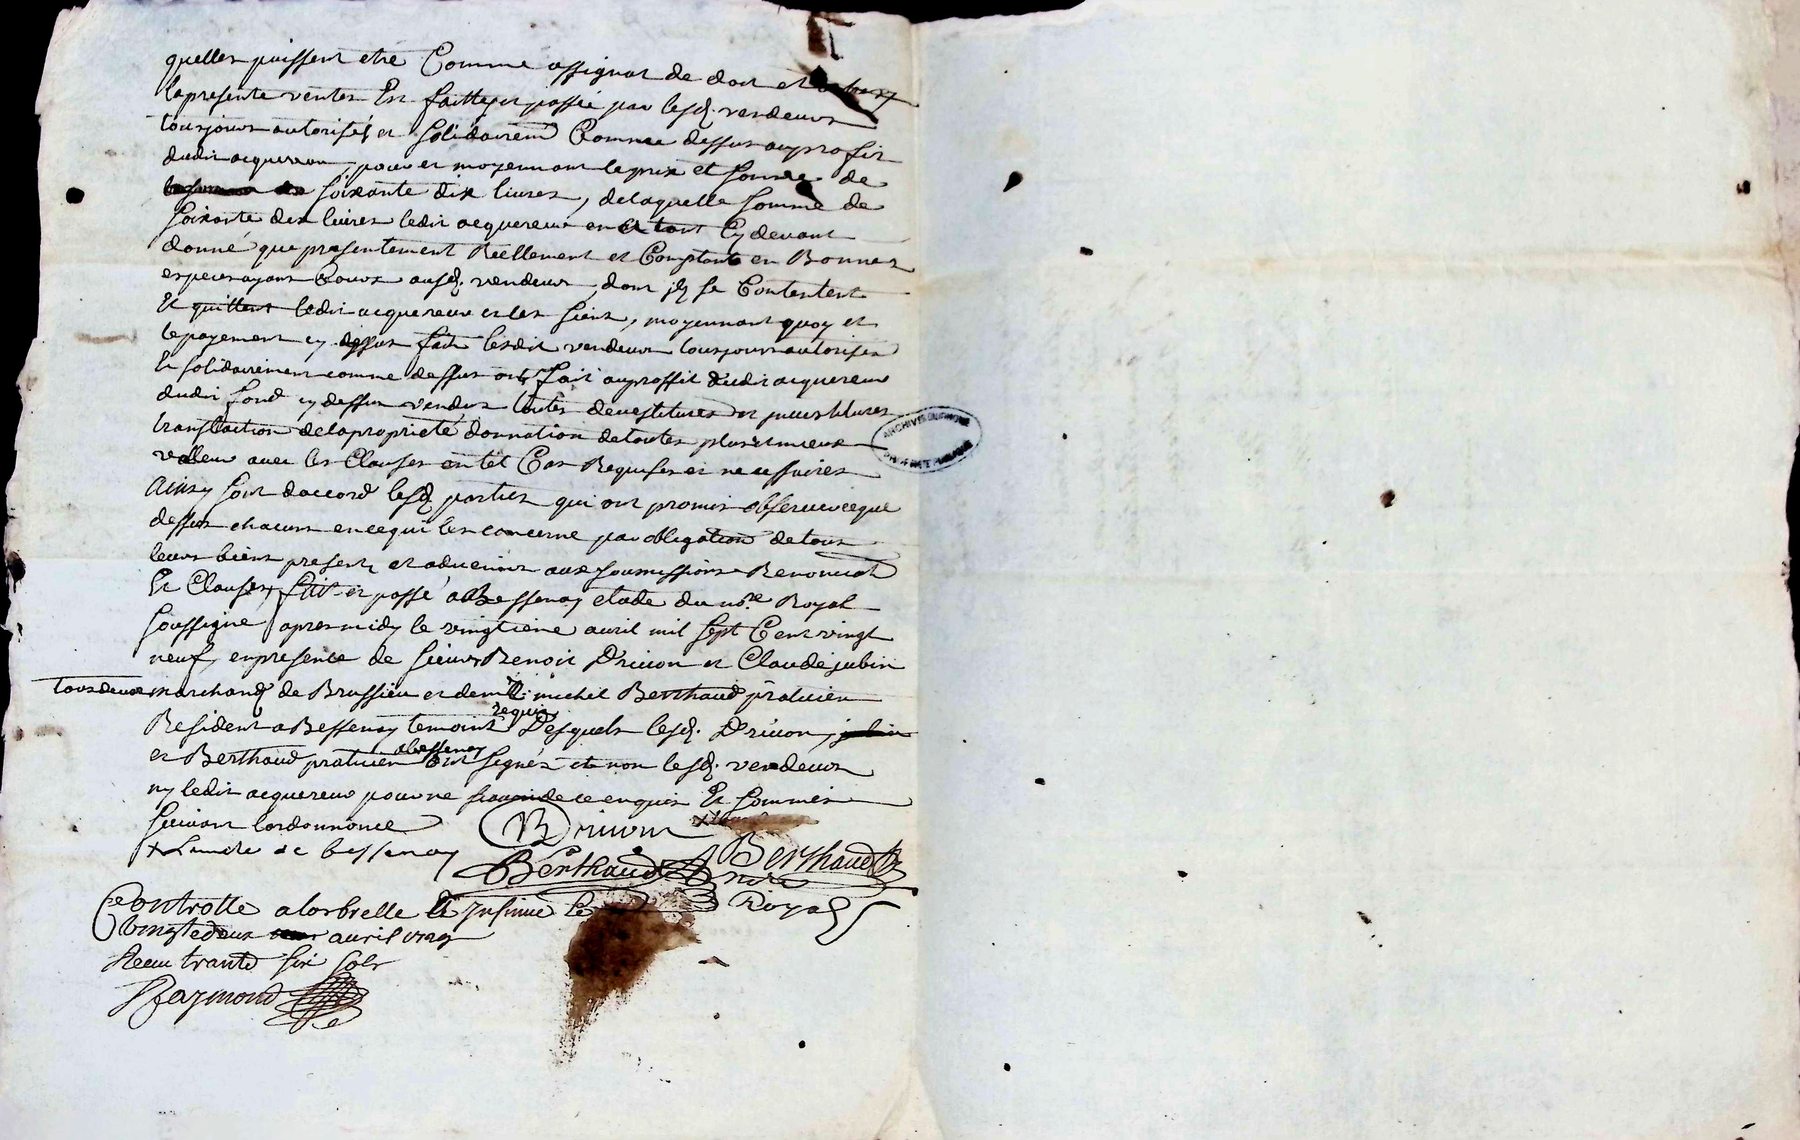 quelles puissent etre Comme assignat de dot et
la presente ventes Est faitte et passée par lesd. vendeurs
tousjours autorisés et solidairemt Comme dessus au profit
dudit acquereur, pour et moyennant le prix et somme de
soixante dix livres, de laquelle somme de
soixante dix livres ledit acquereur en a tant Cy devant
donné que presentement Reellement et Comptant en Bonnes
especes ayant Cours ausd. vendeurs dont ils se Contentent
Et quittent ledit acquereur et les siens, moyennant quoy et
le payement cy dessus fait lesdit vendeurs tousjours autorisés
Et solidairement comme dessus ont fait au proffit dudit acquereur
dudit fond cy dessus vendus toutes devestitures et investitures
translaction de la proprieté donnation de toutes plus et mieux
valleur avec les Clauses en tel Cas Requises et necessaires
Ainsy sont d'accord lesd. parties qui ont promis observer ce que
dessus chacuns en ce qui les concerne par obligation de tous
leurs biens presents et advenirs aux soumissions Renonciat
Et Clauses, fait et passé a Bessenay etude du nore. Royal
soussigné apres midy le vingtieme avril mil sept Cent vingt
neuf, en presence de sieurs Benoit Drivon et Claude jubin
tous deux marchands de Brussieu et de mtre michel Berthaud pratitien
Resident a Bessenay temoins requis Desquels lesd. Drivon, jubin
et Berthaud pratitien a bessenay ont signés et non lesd. vendeurs
ny ledit acquereur pour ne sçavoir de ce enquis Et sommés
suivant l'ordonnance
B Drivon
de bessenay
Berthaud
Berthaud
nore
Royal
Controllé a Lorbrelle Et Insinué le
vingt deux avril 1729
Receu trante six sols
Raymond
ARCHIVES DU RHONE